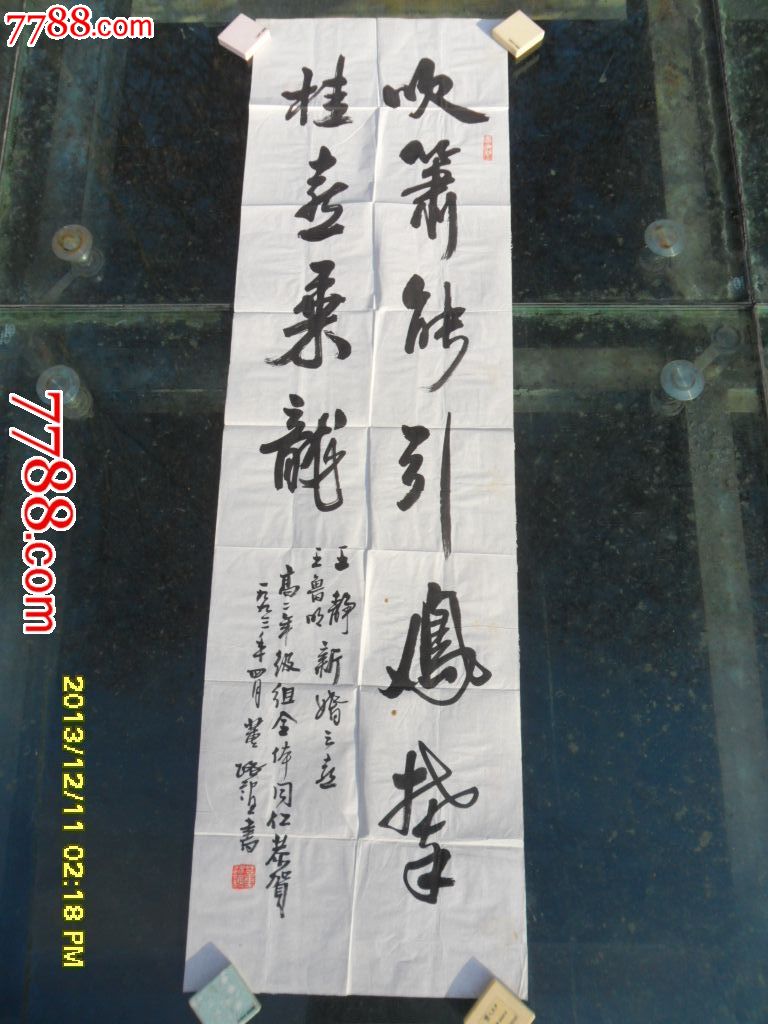 7788.com
吹箫能引鳳攀
桂喜乘龍
王静
王鲁明 新婚之喜
高二年级组全体同仁恭賀
一九九三年四月 董 书
7788.com
2013/12/11 02:18 PM